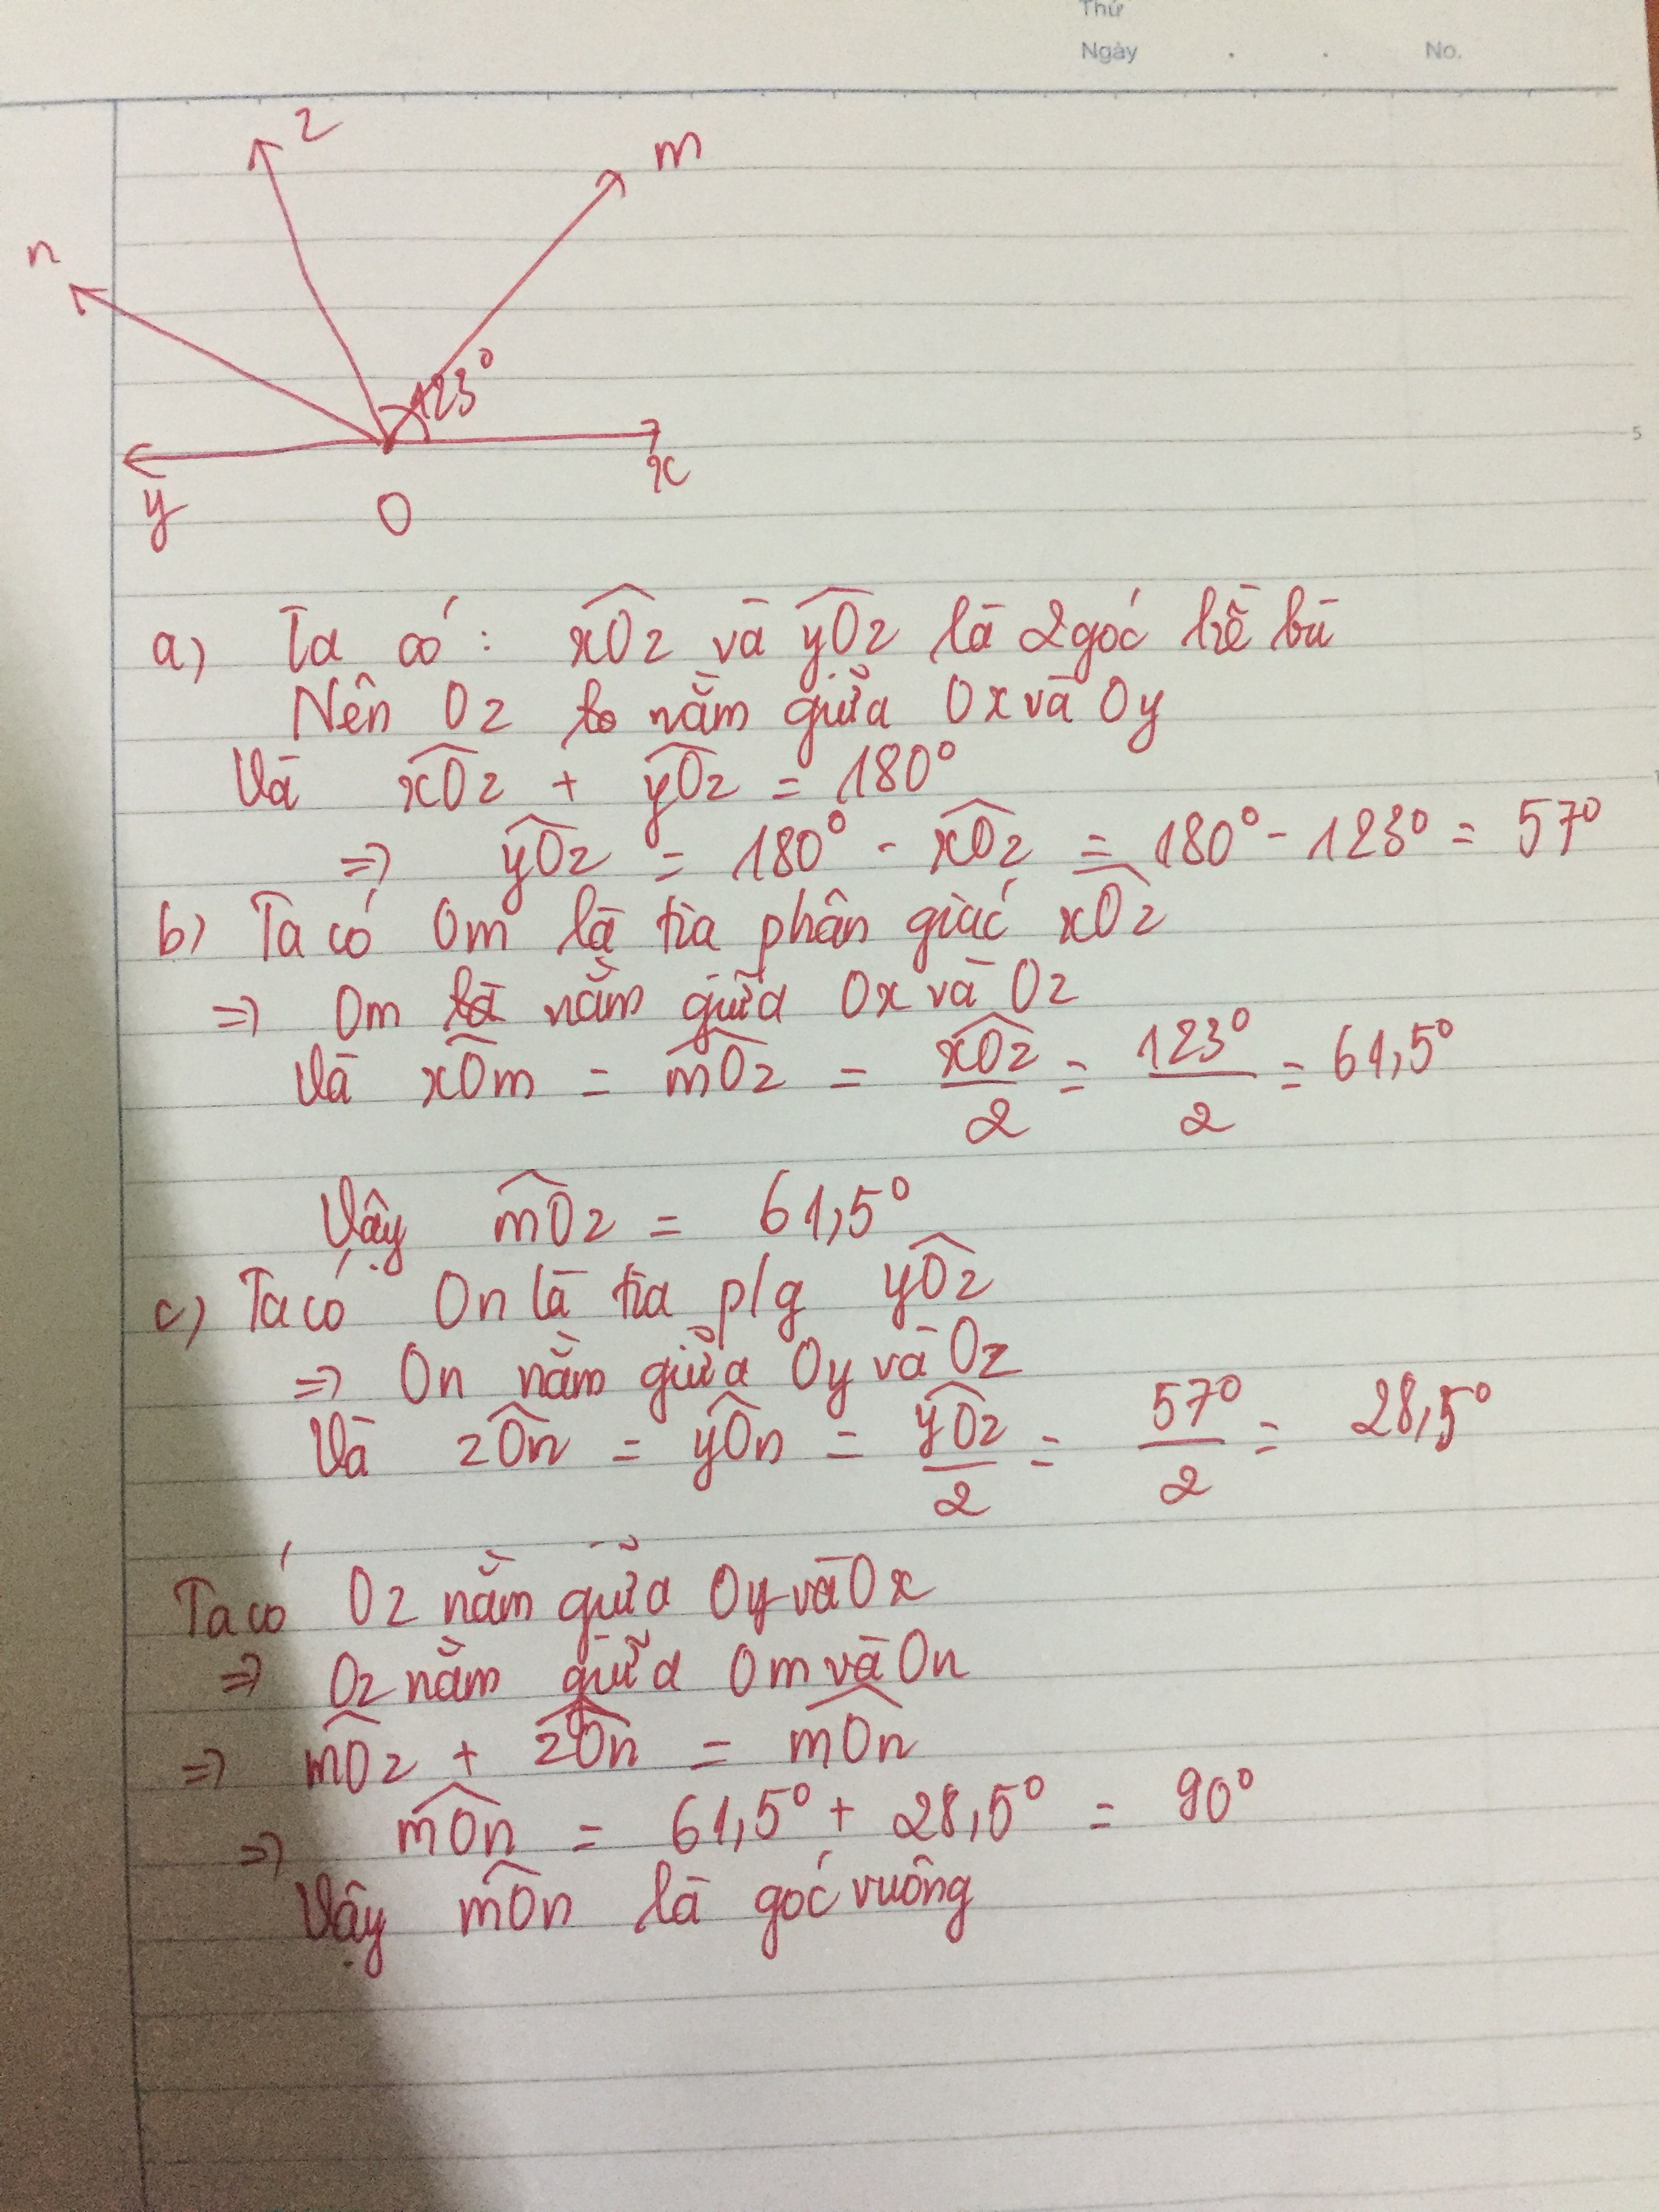 Thứ
Ngày . . No.
z
m
n
123°
x
y
O
5
a) Ta có: xOz và yOz là 2 góc kề bù
Nên Oz nằm giữa Ox và Oy
Và xOz + yOz = 180°
=> yOz = 180° - xOz = 180° - 123° = 57°
b) Ta có Om là tia phân giác xOz
=> Om nằm giữa Ox và Oz
Và xOm = mOz = xOz/2 = 123°/2 = 61,5°
Vậy mOz = 61,5°
c) Ta có On là tia p/g yOz
=> On nằm giữa Oy và Oz
Và zOn = yOn = yOz/2 = 57°/2 = 28,5°
Ta có Oz nằm giữa Oy và Ox
=> Oz nằm giữa Om và On
=> mOz + zOn = mOn
=> mOn = 61,5° + 28,5° = 90°
Vậy mOn là góc vuông